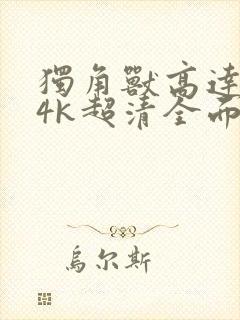 獨角獸高達
4K超清全面
烏尔斯